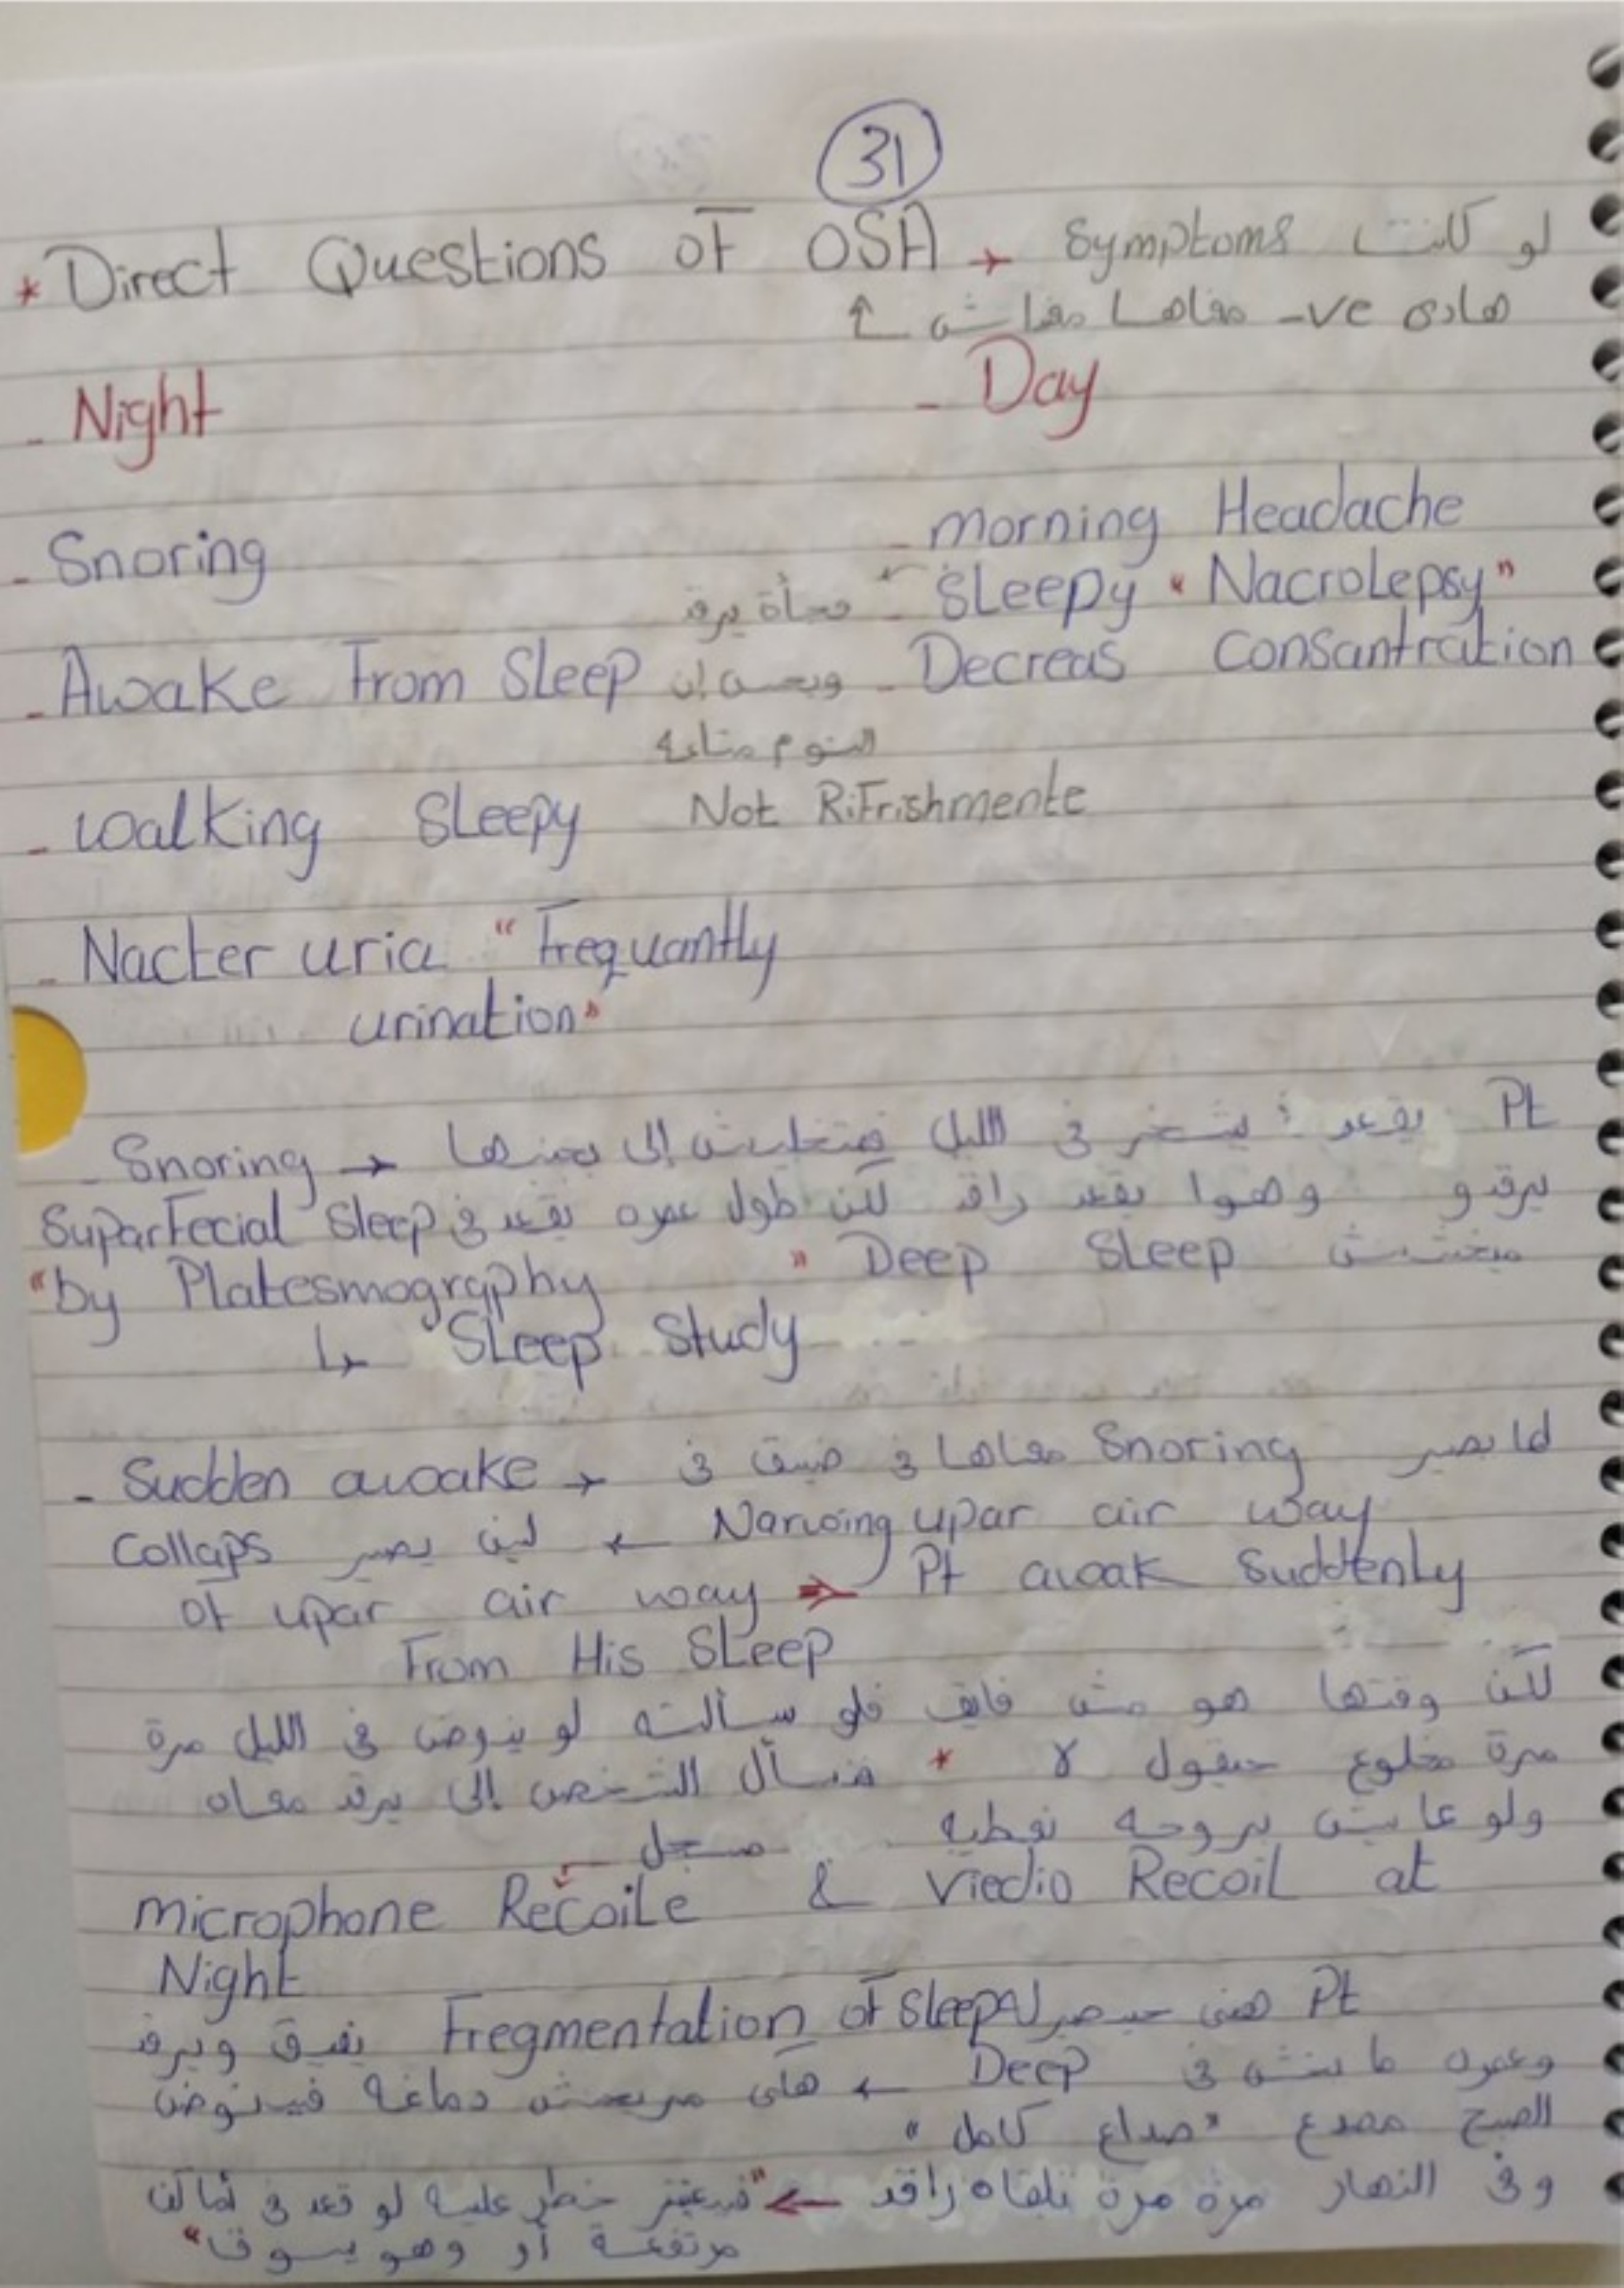 31
* Direct Questions of OSA → Symptoms لو كانت
هادي -ve معاها معناش
- Night
- Day
- Snoring
- Awake From Sleep
- walking Sleepy
- Nacter uria "Frequantly
urination"
- morning Headache
- Sleepy "Nacrolepsy"
فجأة يرقد
- Decreas Consantration
ويحس إن
النوم متاعه
Not RiFrishmente
- Snoring → Pt يقعد يشخر في الليل إلى
يرقدو وهوا يقعد راقد لكن طول عمره يقعد في Sleep SuparFecial
ميخشش Deep Sleep "
"by Platesmography
↳ Sleep Study
- Sudden awoake → لما يصير Snoring معاها في ضيق في
Narwoing upar air way ← لين يصير Collaps
of upar air way ⇒ Pt awoak Suddenly
From His Sleep
لكن وقتها هو مش فايق فلو سألته لو ينوض في الليل مرة
مرة مخلوع حيقول لا * فنسأل الشخص إلى يرقد معاه
ولو عايش بروحه نعطيه مسجل
microphone Recoile & Viedio Recoil at
Night
Pt هني حيصير Fregmentation of Sleep يفيق ويرقد
وعمره ما ينش في Deep ← هكي مريحش دماغه فينوض
الصبح مصدع "صداع كامل"
وفي النهار مرة مرة تلقاه راقد ← "خطر عليه لو قعد في أماكن
مرتفعة أو وهو يسوق"